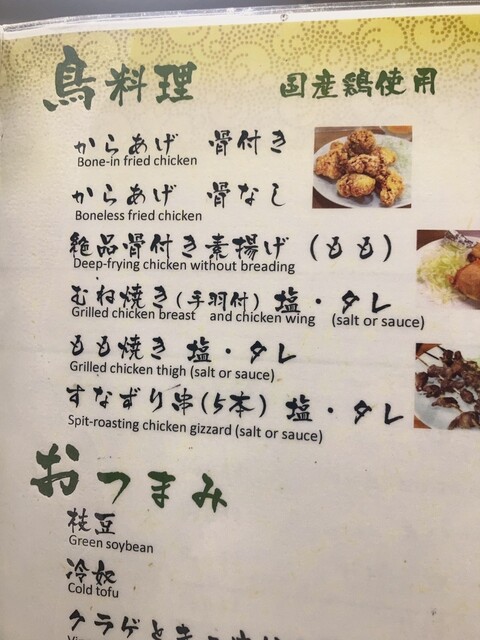 鳥料理 国産鶏使用
からあげ 骨付き
Bone-in fried chicken
からあげ 骨なし
Boneless fried chicken
絶品骨付き素揚げ(もも)
Deep-frying chicken without breading
むね焼き(手羽付)塩・タレ
Grilled chicken breast and chicken wing (salt or sauce)
もも焼き 塩・タレ
Grilled chicken thigh (salt or sauce)
すなずり串(5本) 塩・タレ
Spit-roasting chicken gizzard (salt or sauce)
おつまみ
枝豆
Green soybean
冷奴
Cold tofu
クラゲときゅ